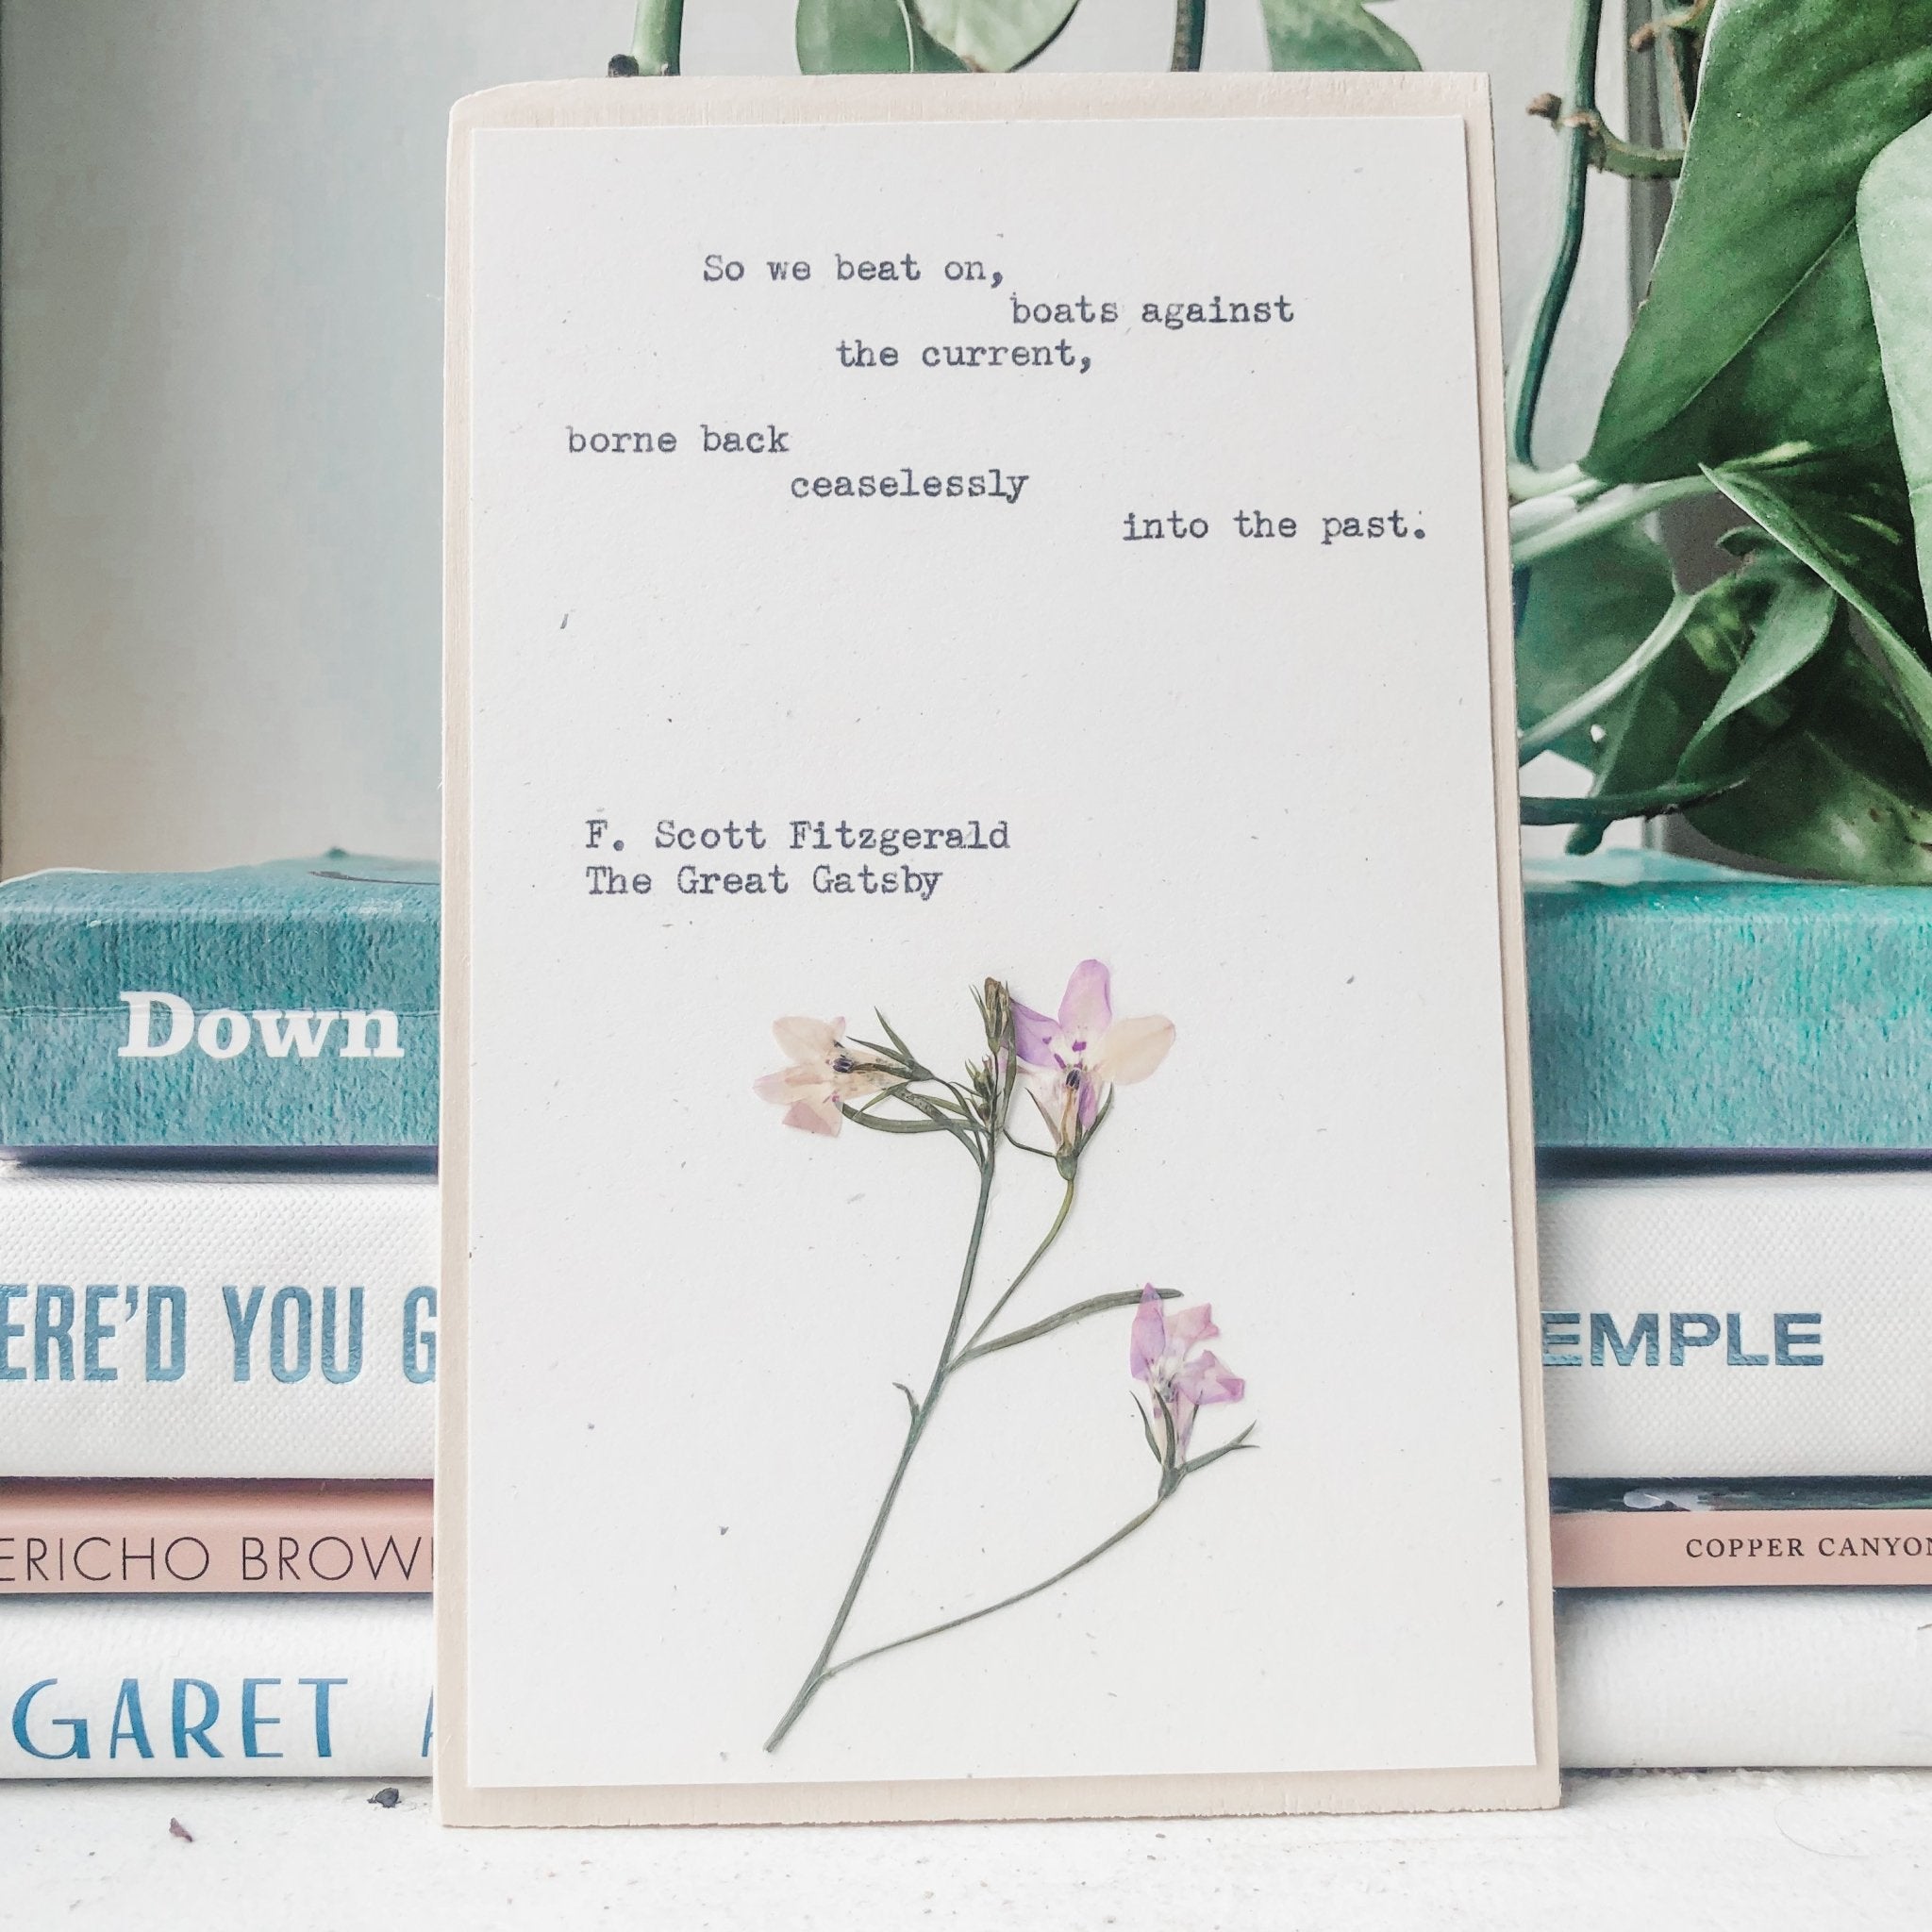 So we beat on,
boats against
the current,
borne back
ceaselessly
into the past.
F. Scott Fitzgerald
The Great Gatsby
Down
ERE'D YOU G
EMPLE
ERICHO BROW
COPPER CANYON
GARET